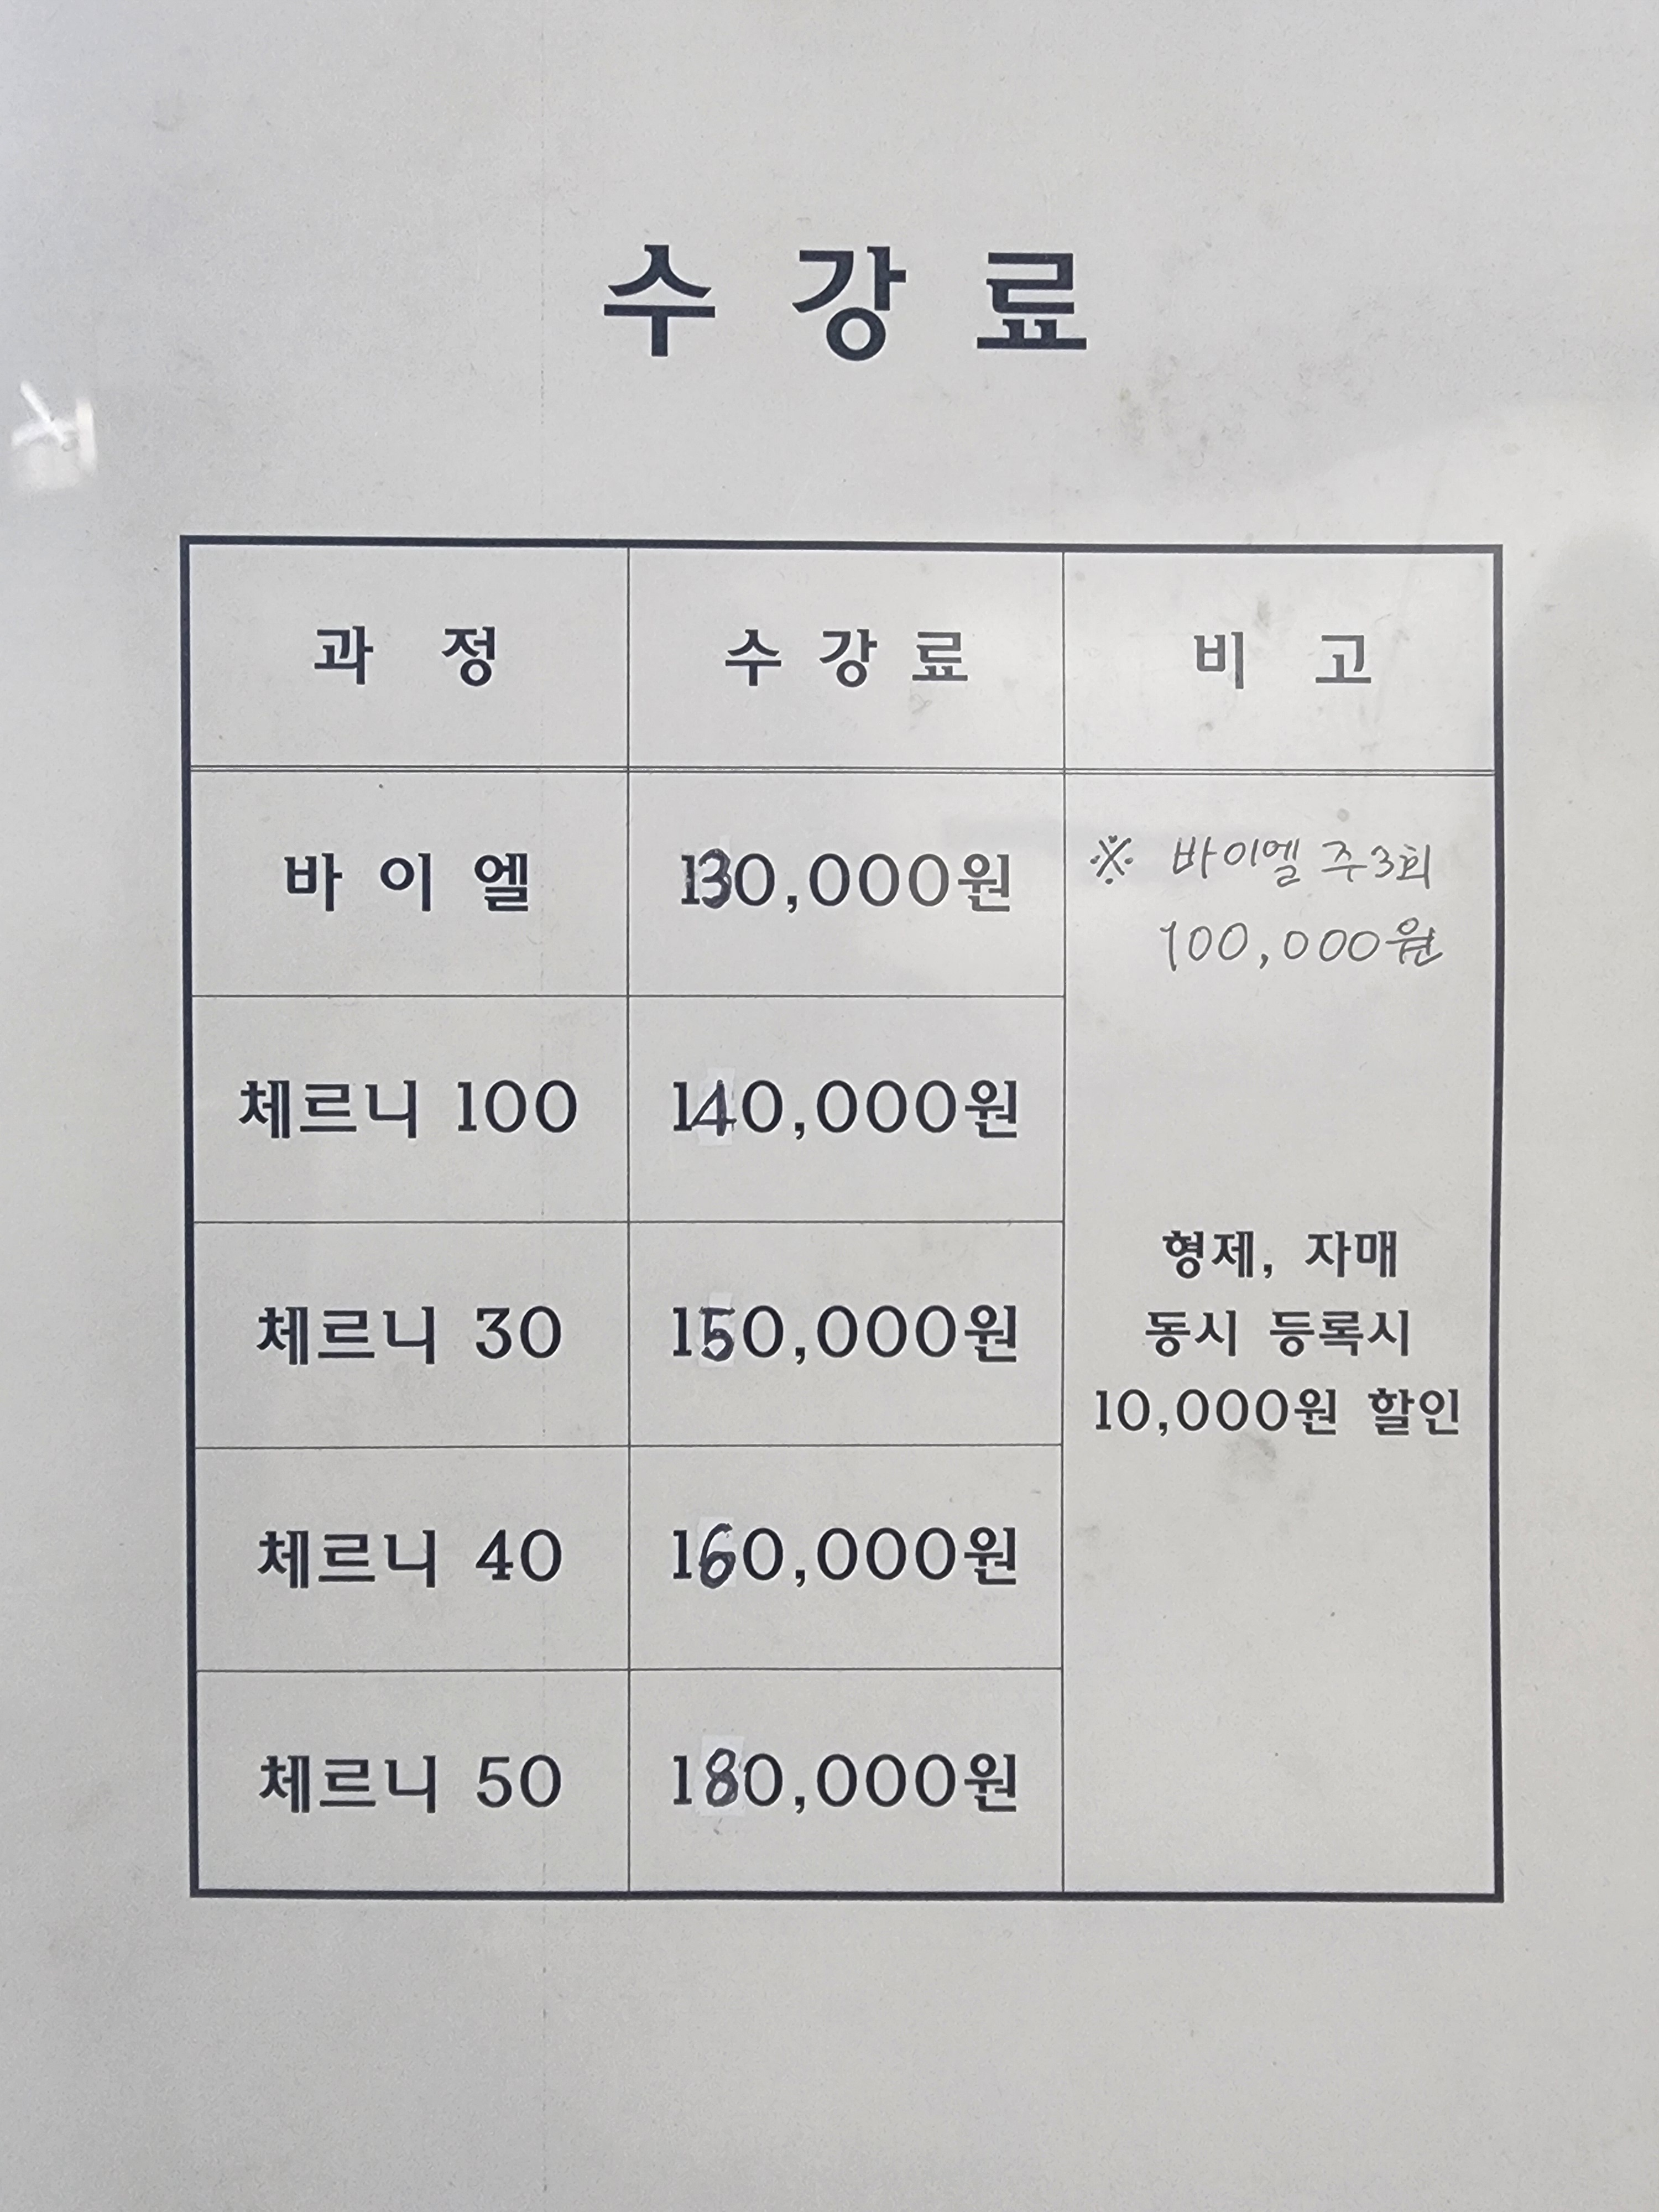 수 강 료
과 정 수 강 료 비 고
바 이 엘 130,000원 ※ 바이엘 주3회
100,000원
체르니 100 140,000원
체르니 30 150,000원
형제, 자매
동시 등록시
10,000원 할인
체르니 40 160,000원
체르니 50 180,000원